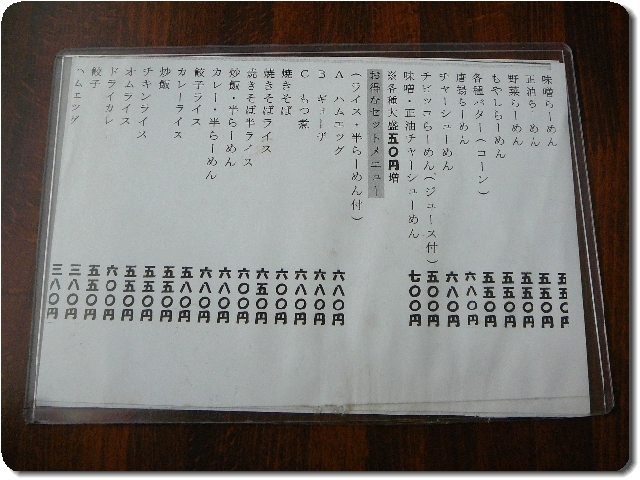 味噌らーめん 五五〇円
正油らーめん 五五〇円
野菜らーめん 五五〇円
もやしらーめん 五五〇円
各種バター(コーン) 五五〇円
唐揚らーめん 六八〇円
チャーシューめん 六八〇円
チビッコらーめん(ジュース付) 五〇〇円
味噌・正油チャーシューめん 七〇〇円
※各種大盛五〇円増
お得なセットメニュー
(ライス・半らーめん付)
A ハムエッグ 六八〇円
B ギョーザ 六八〇円
C もつ煮 六八〇円
焼きそば 六〇〇円
焼きそばライス 六五〇円
焼きそば半ライス 六〇〇円
炒飯・半らーめん 六八〇円
カレー・半らーめん 六八〇円
餃子ライス 五八〇円
カレーライス 五五〇円
炒飯 五五〇円
チキンライス 五五〇円
オムライス 六〇〇円
ドライカレー 五五〇円
餃子 三八〇円
ハムエッグ 三八〇円